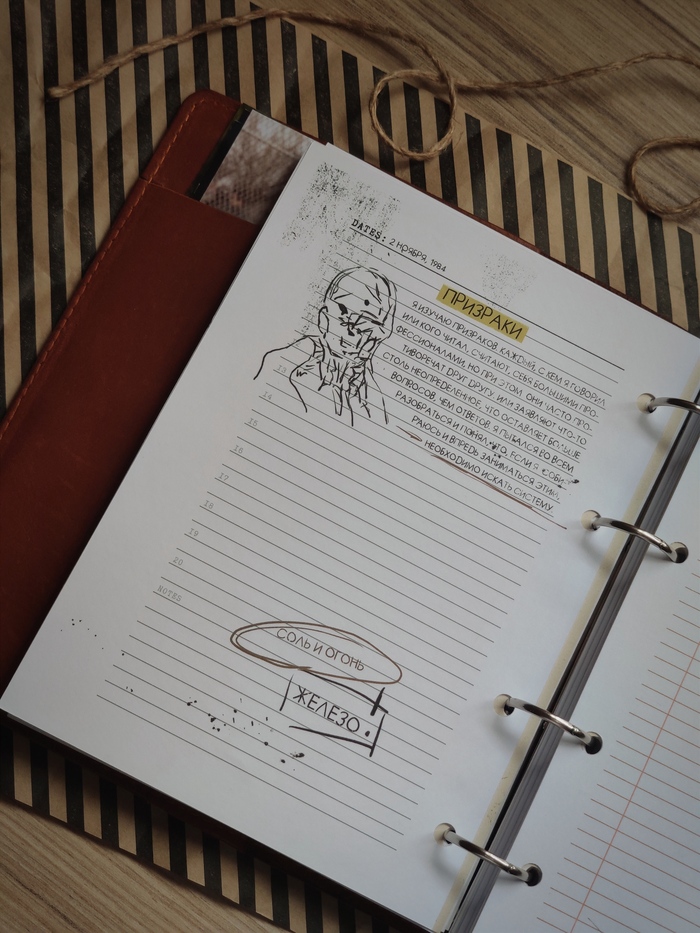 DATES: 2 НОЯБРЯ, 1984
ПРИЗРАКИ
Я ИЗУЧАЮ ПРИЗРАКОВ. КАЖДЫЙ, С КЕМ Я ГОВОРИЛ
ИЛИ КОГО ЧИТАЛ, СЧИТАЮТ, СЕБЯ БОЛЬШИМИ ПРО-
ФЕССИОНАЛАМИ, НО ПРИ ЭТОМ, ОНИ ЧАСТО ПРО-
ТИВОРЕЧАТ ДРУГ ДРУГУ, ИЛИ ЗАЯВЛЯЮТ ЧТО-ТО
СТОЛЬ НЕОПРЕДЕЛЕННОЕ, ЧТО ОСТАВЛЯЕТ БОЛЬШЕ
ВОПРОСОВ, ЧЕМ ОТВЕТОВ. Я ПЫТАЛСЯ ВО ВСЕМ
РАЗОБРАТЬСЯ И ПОНЯЛ, ЧТО, ЕСЛИ Я СОБИ-
РАЮСЬ И ВПРЕДЬ ЗАНИМАТЬСЯ ЭТИМ,
НЕОБХОДИМО ИСКАТЬ СИСТЕМУ
13
14
15
16
17
18
19
20
NOTES
СОЛЬ И ОГОНЬ
ЖЕЛЕЗО